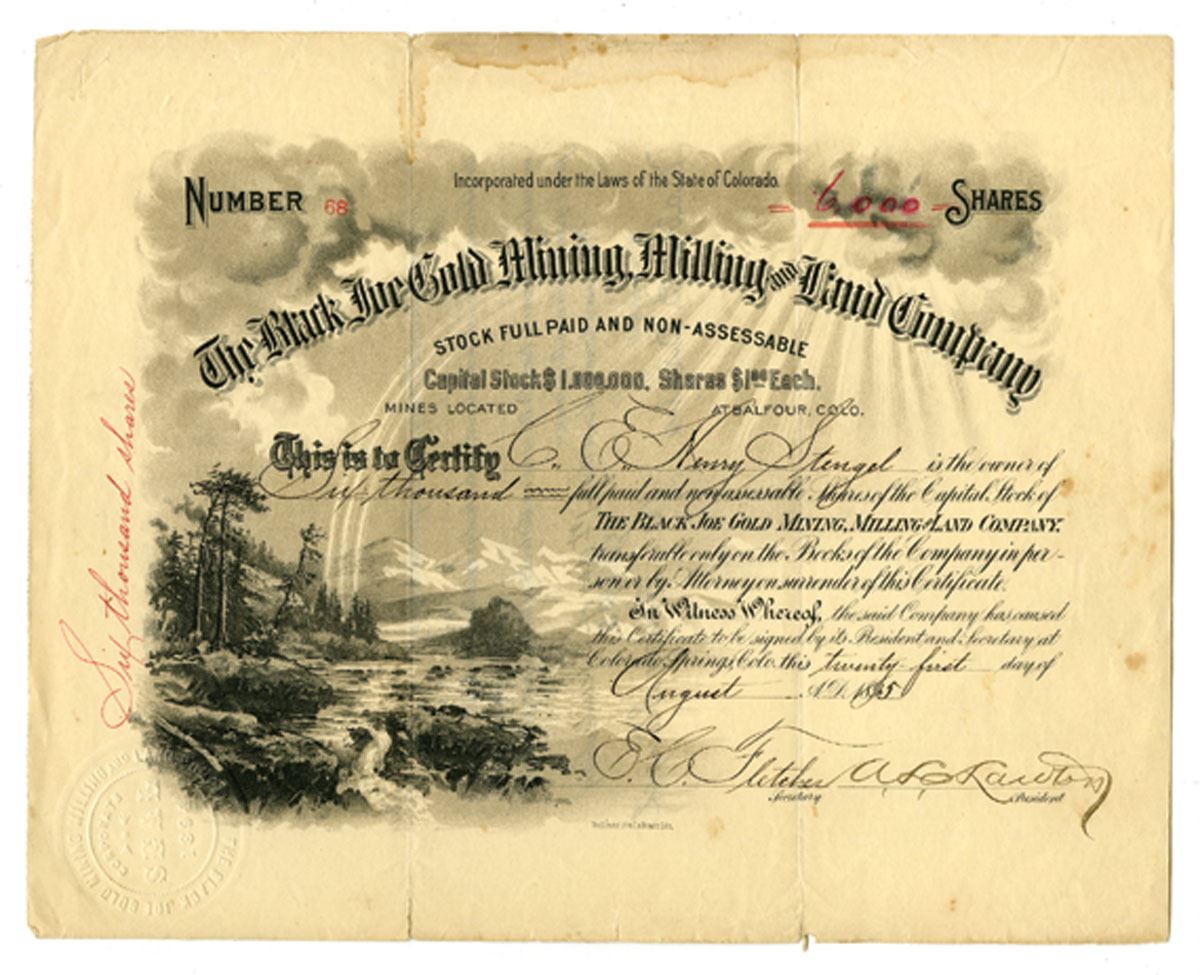 Incorporated under the Laws of the State of Colorado.
NUMBER 68
6,000 SHARES
The Black Joe Gold Mining, Milling and Land Company
STOCK FULL PAID AND NON-ASSESSABLE
Capital Stock $1,000,000. Shares $1.00 Each.
MINES LOCATED AT BALFOUR, COLO.
This is to Certify C. E. Henry Stengel is the owner of
Six thousand full paid and non assessable Shares of the Capital Stock of
THE BLACK JOE GOLD MINING, MILLING AND LAND COMPANY.
transferable only on the Books of the Company in per-
son or by Attorney on surrender of this Certificate.
In Witness Whereof, the said Company has caused
this Certificate to be signed by its President and Secretary at
Colorado Springs, Colo. this twenty-first day of
August A.D. 1895
E. C. Fletcher
Secretary
President
Six thousand shares
THE BLACK JOE GOLD MINING MILLING AND LAND
CORPORATE
SEAL